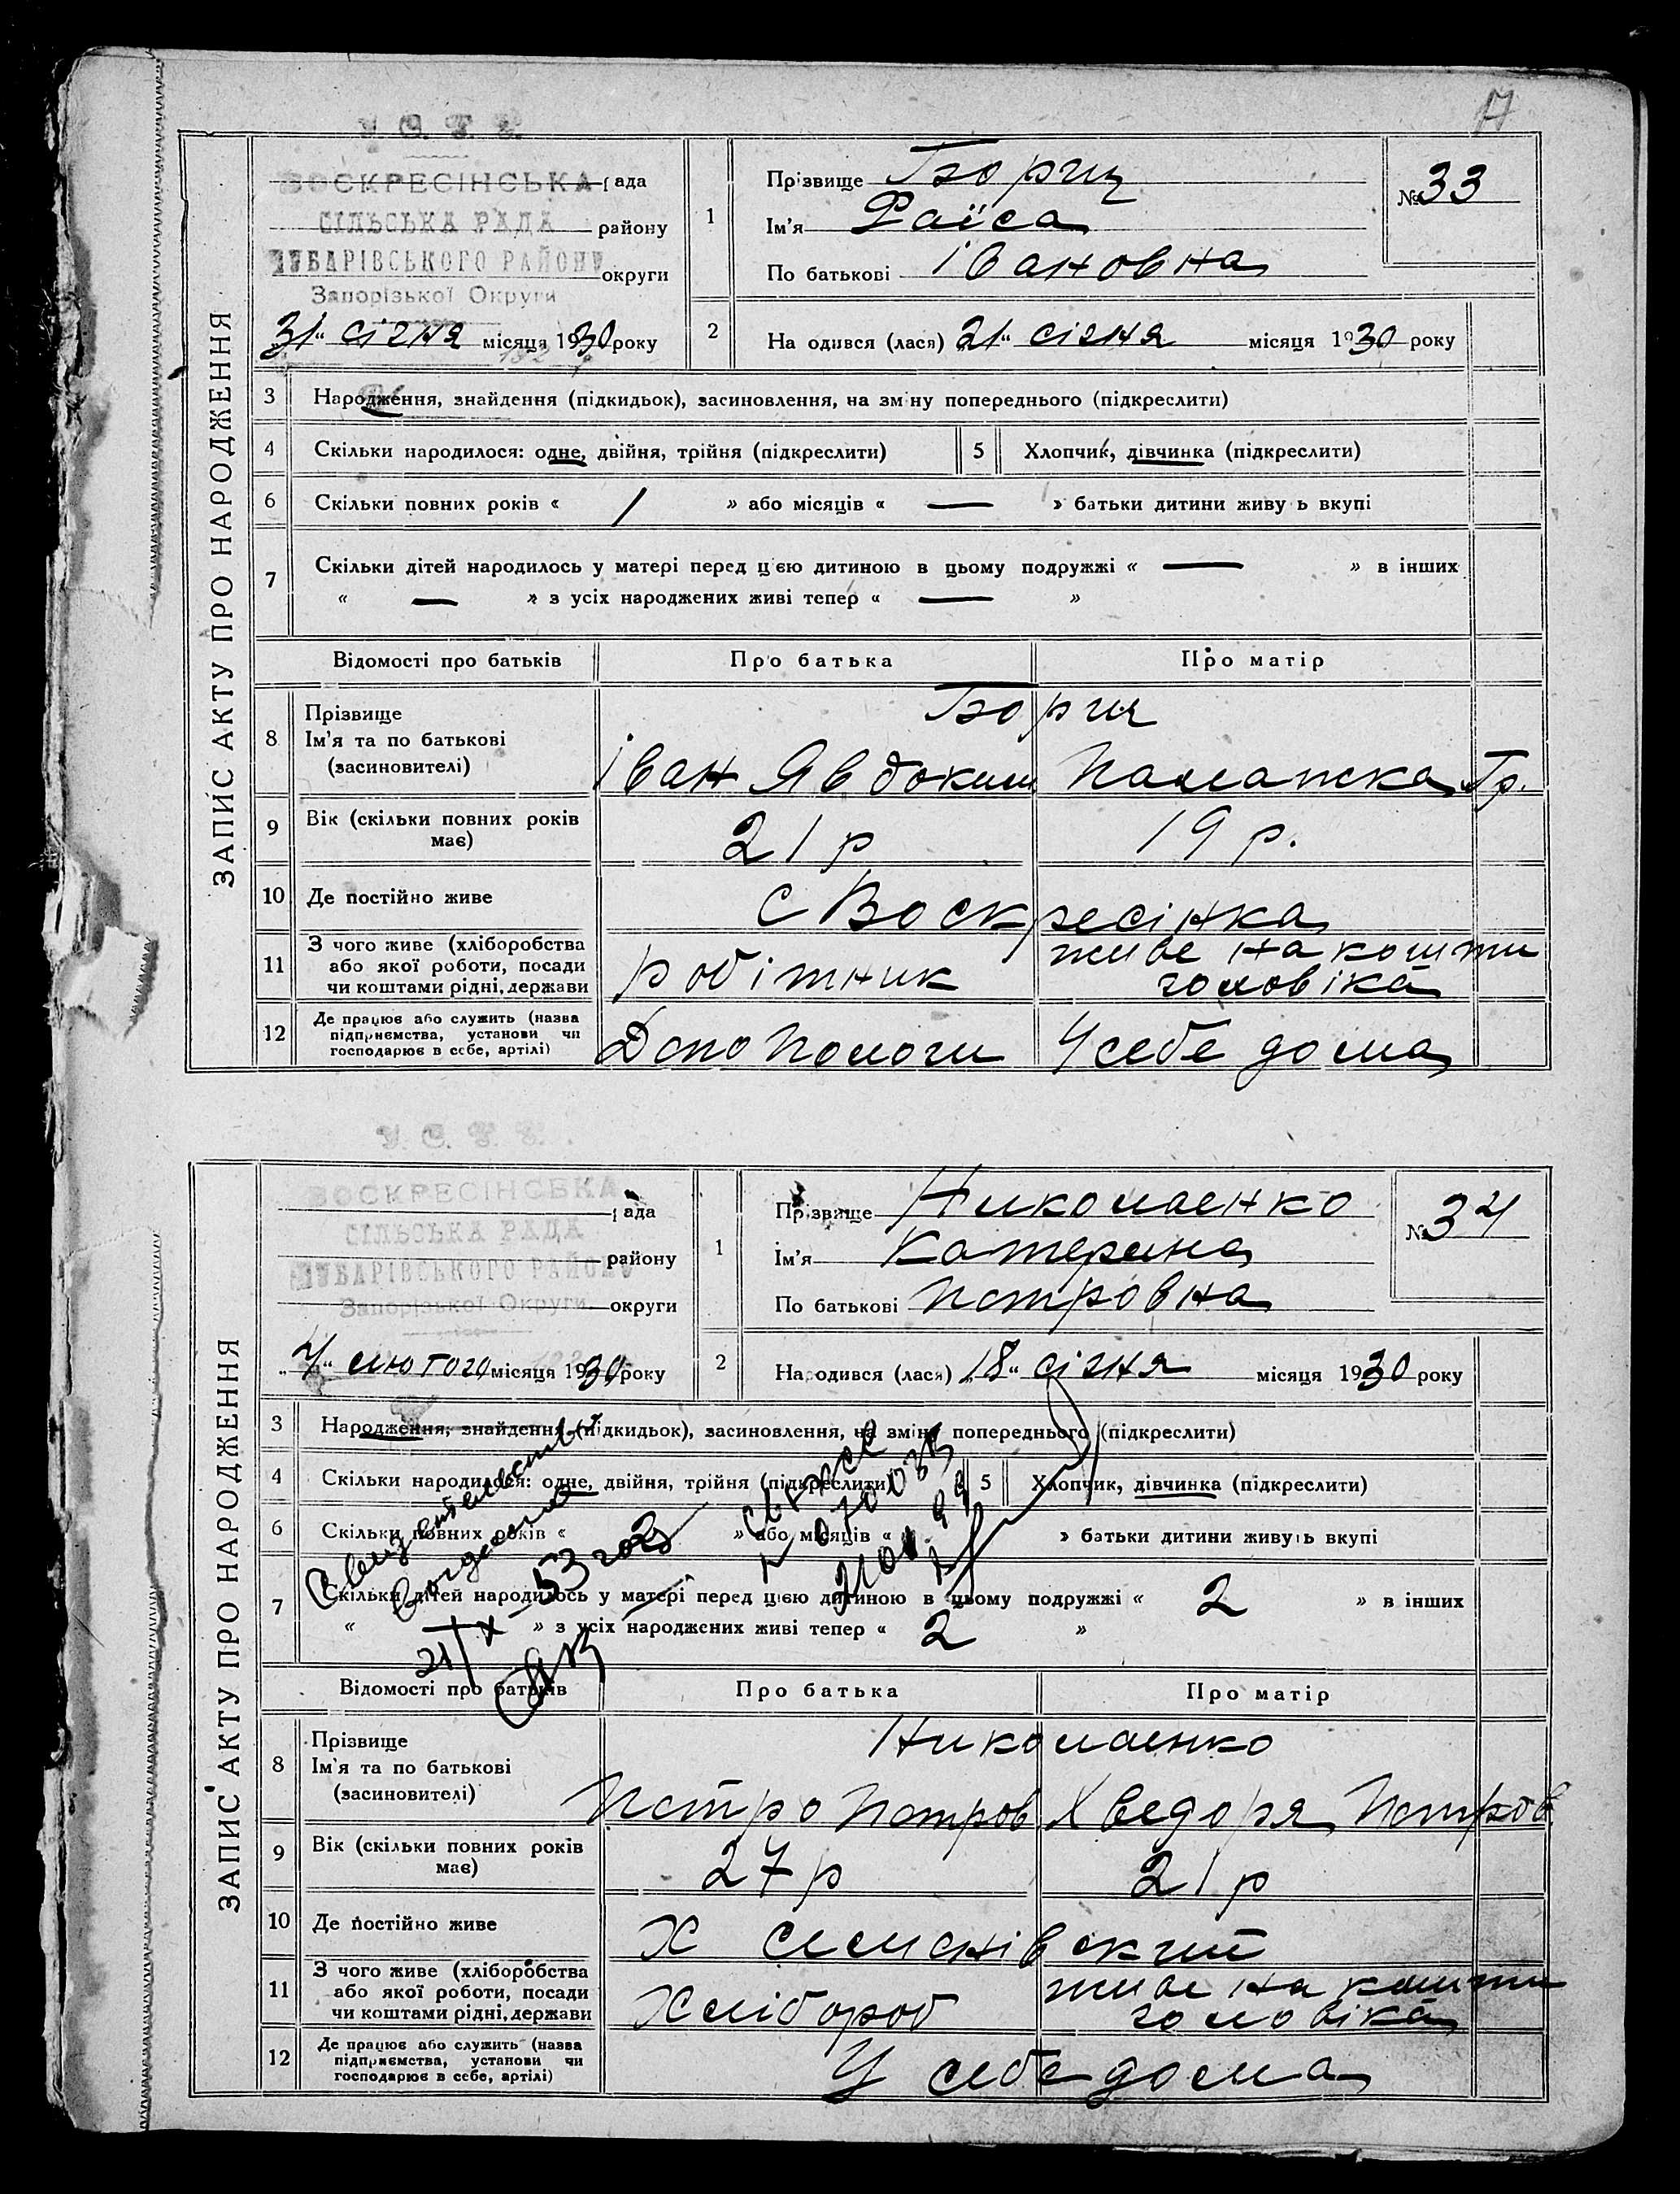 17
У. С. Р. Р.
ВОСКРЕСІНСЬКА рада
СІЛЬСЬКА РАДА району
ЧУБАРІВСЬКОГО РАЙОНУ округи
Запорізької Округи
31 січня місяця 1930 року
ЗАПИС АКТУ ПРО НАРОДЖЕННЯ
1 Прізвище Борщ
Ім'я Раїса
По батькові Івановна
№ 33
2 Народився (лася) „21“ січня місяця 1930 року
3 Народження, знайдення (підкидьок), засиновлення, на зміну попереднього (підкреслити)
4 Скільки народилося: одне, двійня, трійня (підкреслити) 5 Хлопчик, дівчинка (підкреслити)
6 Скільки повних років « 1 » або місяців « — » батьки дитини живуть вкупі
7 Скільки дітей народилось у матері перед цією дитиною в цьому подружжі « — » в інших
« — » з усіх народжених живі тепер « — »
Відомості про батьків Про батька Про матір
8 Прізвище Борщ
Ім'я та по батькові
(засиновителі) Іван Явдоким Палажка Гр.
9 Вік (скільки повних років
має) 21 р 19 р.
10 Де постійно живе С Воскресінка
11 З чого живе (хліборобства
або якої роботи, посади
чи коштами рідні, держави робітник живе на кошти
головіка
12 Де працює або служить (назва
підприємства, установи чи
господарює в себе, артілі) У себе дома
У. С. Р. Р.
ВОСКРЕСІНСЬКА рада
СІЛЬСЬКА РАДА району
ЧУБАРІВСЬКОГО РАЙОНУ
Запорізької Округи округи
„4“ лютого місяця 1930 року
ЗАПИС АКТУ ПРО НАРОДЖЕННЯ
1 Прізвище Николаенко
Ім'я Катерина
По батькові Петровна
№ 34
2 Народився (лася) „18“ січня місяця 1930 року
3 Народження, знайдення (підкидьок), засиновлення, на зміну попереднього (підкреслити)
4 Скільки народилося: одне, двійня, трійня (підкреслити) 5 Хлопчик, дівчинка (підкреслити)
6 Скільки повних років « » або місяців « » батьки дитини живуть вкупі
7 Скільки дітей народилось у матері перед цією дитиною в цьому подружжі « 2 » в інших
« » з усіх народжених живі тепер « 2 »
21/X 53 год
Відомості про батьків Про батька Про матір
8 Прізвище Николаенко
Ім'я та по батькові
(засиновителі) Петро Петров Хведоря Петров.
9 Вік (скільки повних років
має) 27 р 21 р
10 Де постійно живе Х Семенівский
11 З чого живе (хліборобства
або якої роботи, посади
чи коштами рідні, держави Хлібороб живе на кошти
головіка
12 Де працює або служить (назва
підприємства, установи чи
господарює в себе, артілі) У себе дома